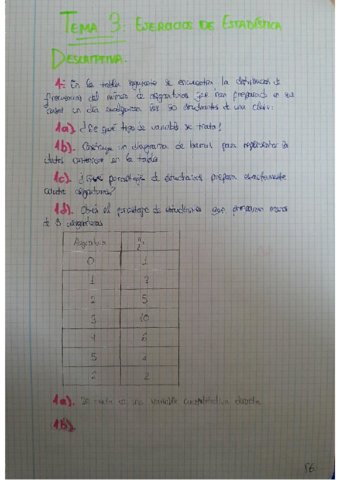 TEMA 3: EJERCICIOS DE ESTADÍSTICA
DESCRIPTIVA.
1. En la tabla siguiente se encuentra la distribución de
frecuencias del número de asignaturas que han preparado en su
casa en un día cualquiera los 30 estudiantes de una clase:
1a). ¿De qué tipo de variable se trata?
1b). Construye un diagrama de barras para representar los
datos contenidos en la tabla
1c). ¿Qué porcentaje de estudiantes preparan exactamente
cuatro asignaturas?
1d). el porcentaje de estudiantes que preparan menos
de 3 asignaturas
Asignaturas
0 1
1 7
2 5
3 10
4
5 2
2
1a). Se trata de una variable cuantitativa discreta
1b).
56